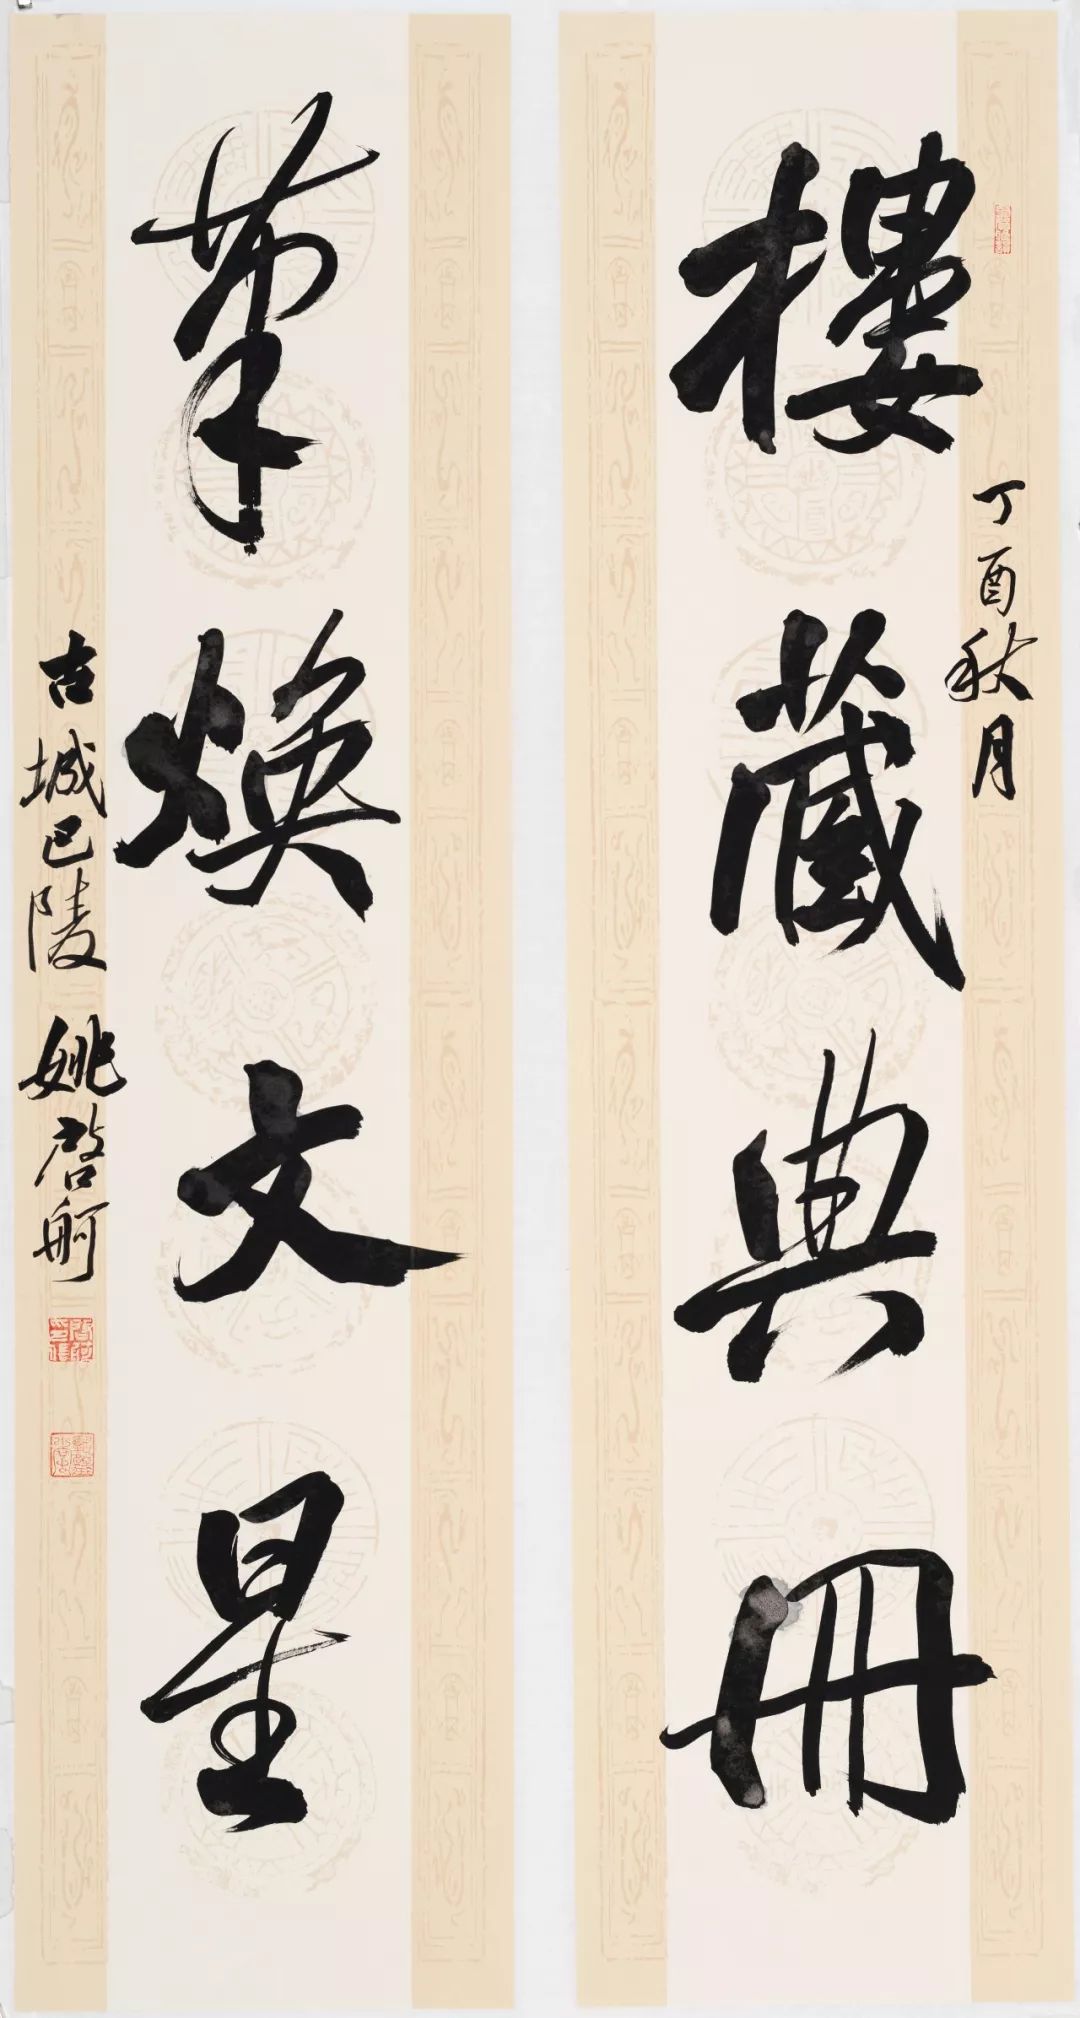 樓藏典冊
丁酉秋月
筆煥文星
古城巴陵 姚啓舸